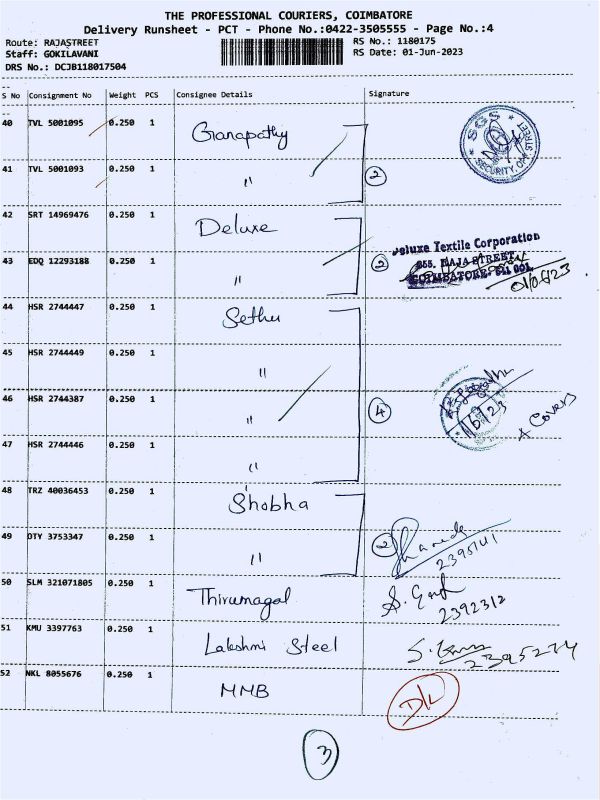 THE PROFESSIONAL COURIERS, COIMBATORE
Delivery Runsheet - PCT - Phone No.:0422-3505555 - Page No.:4
Route: RAJASTREET RS No.: 1180175
Staff: GOKILAVANI RS Date: 01-Jun-2023
DRS No.: DCJB118017504
S No Consignment No Weight PCS Consignee Details Signature
40 TVL 5001095 0.250 1 Ganapathy
SGS
SECURITY, OP STREET
41 TVL 5001093 0.250 1 "
2
42 SRT 14969476 0.250 1 Deluxe
Deluxe Textile Corporation
855, RAJA STREET,
COIMBATORE-641 001
01/06/23
43 EDQ 12293188 0.250 1 "
2
44 HSR 2744447 0.250 1 Sethu
45 HSR 2744449 0.250 1 "
46 HSR 2744387 0.250 1 "
4
1/6/23
4 Covers
47 HSR 2744446 0.250 1 "
48 TRZ 40036453 0.250 1 Shobha
49 OTY 3753347 0.250 1 "
2
2395141
50 SLM 321071805 0.250 1 Thirumagal
2392312
51 KMU 3397763 0.250 1 Lakshmi Steel
2395274
52 NKL 8055676 0.250 1 MMB
D/L
3